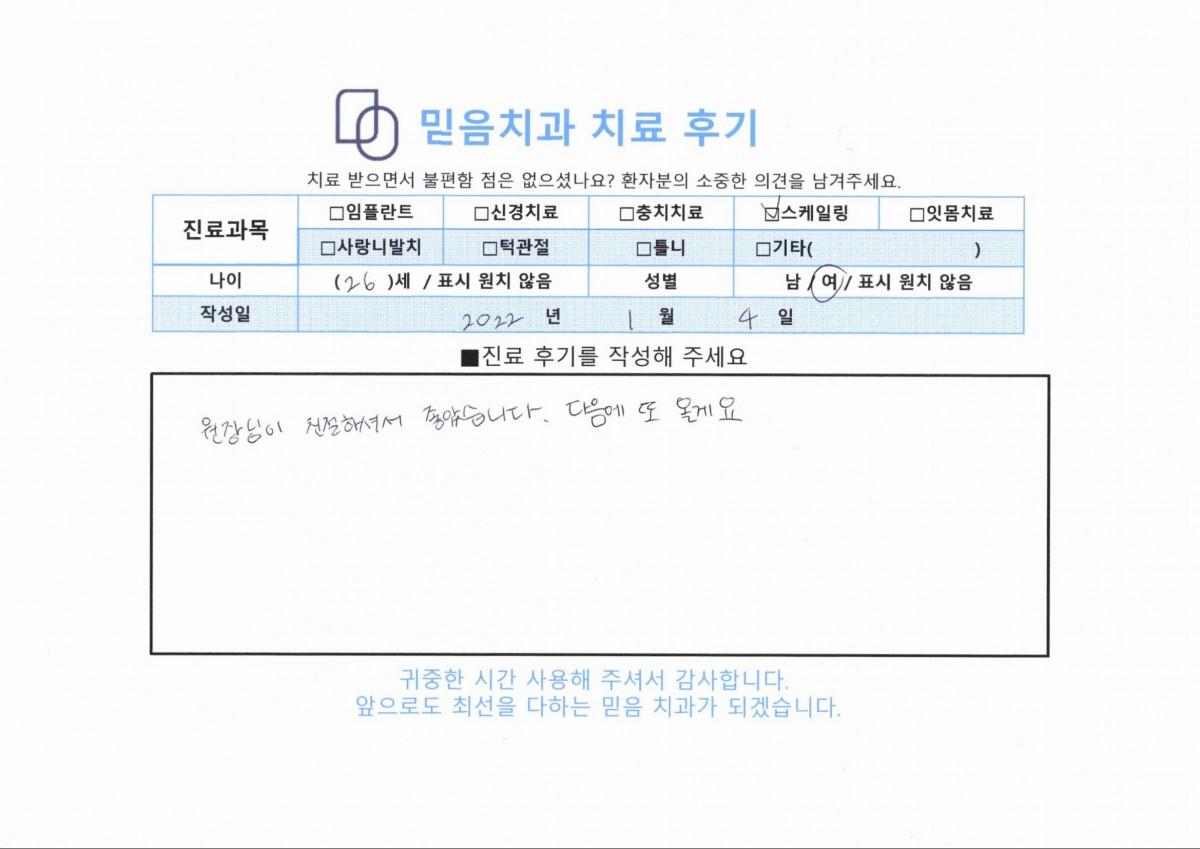 믿음치과 치료 후기
치료 받으면서 불편함 점은 없으셨나요? 환자분의 소중한 의견을 남겨주세요.
진료과목 □임플란트 □신경치료 □충치치료 ☑스케일링 □잇몸치료
□사랑니발치 □턱관절 □틀니 □기타( )
나이 (26)세 / 표시 원치 않음 성별 남 / 여 / 표시 원치 않음
작성일 2022 년 1 월 4 일
■진료 후기를 작성해 주세요
원장님이 친절하셔서 좋았습니다. 다음에 또 올게요
귀중한 시간 사용해 주셔서 감사합니다.
앞으로도 최선을 다하는 믿음 치과가 되겠습니다.